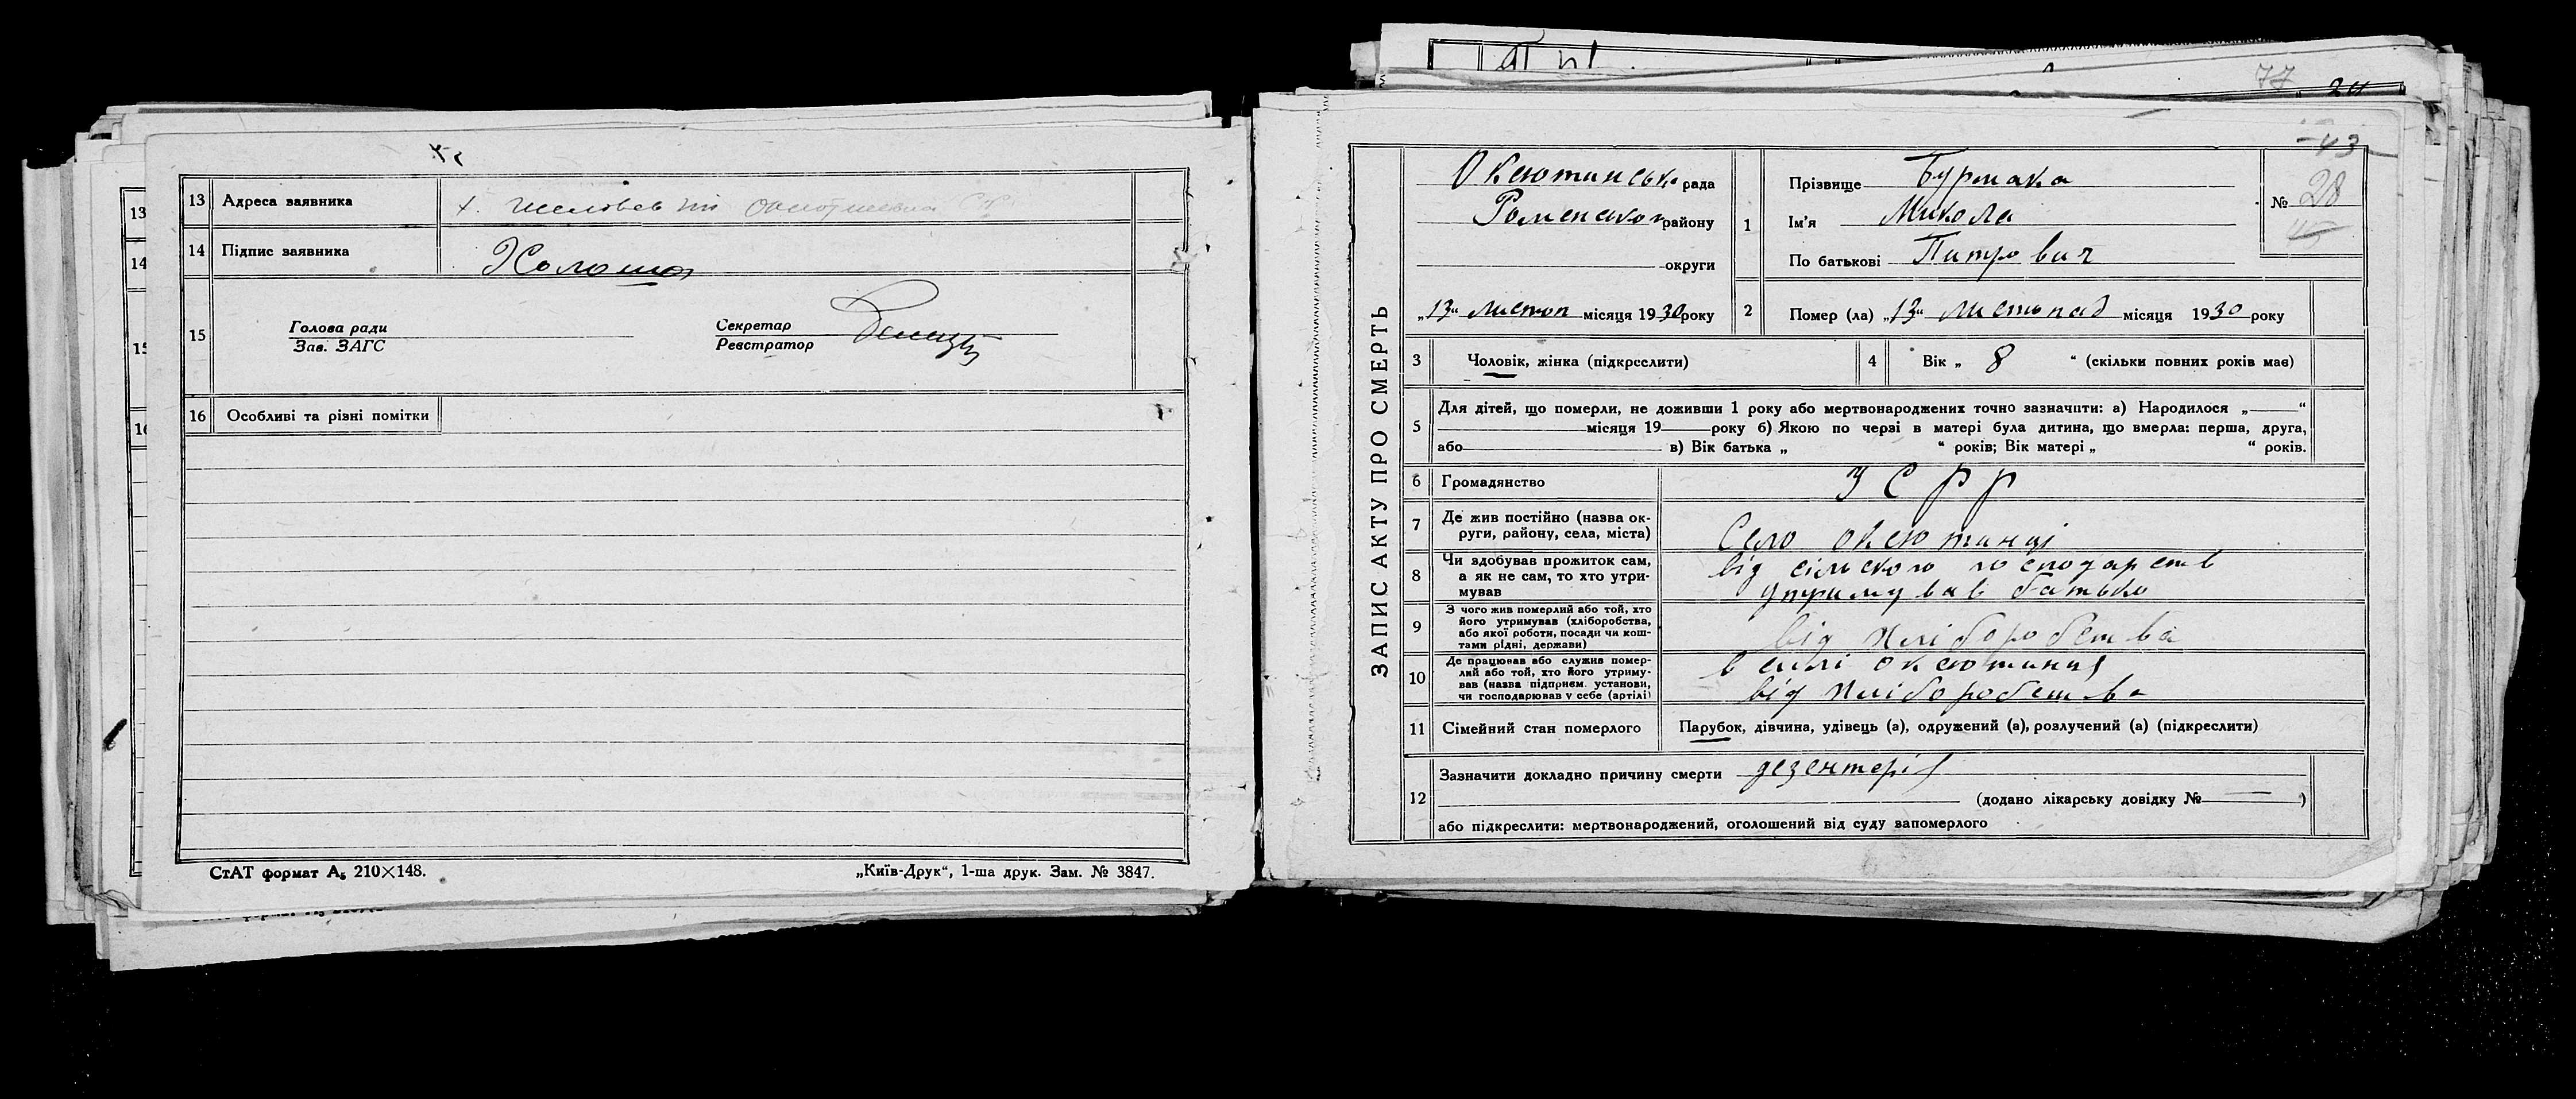 13
14
15
13 Адреса заявника х.
14 Підпис заявника
15 Голова ради
Зав. ЗАГС
Секретар
Реєстратор
16 Особливі та різні помітки
СтАТ формат А5 210×148.
„Київ-Друк“, 1-ша друк. Зам. № 3847.
77
43
ЗАПИС АКТУ ПРО СМЕРТЬ
Оксютинська рада
Роменського району
округи
„13“ листоп місяця 1930 року
1 Прізвище Бурмака
Ім'я Микола
По батькові Питрович
№ 28
2 Помер (ла) „13“ листопад місяця 1930 року
3 Чоловік, жінка (підкреслити)
4 Вік „ 8 “ (скільки повних років має)
5 Для дітей, що померли, не доживши 1 року або мертвонароджених точно зазначити: а) Народилося „ — “
місяця 19 року б) Якою по черзі в матері була дитина, що вмерла: перша, друга,
або в) Вік батька „ “ років; Вік матері „ “ років.
6 Громадянство УСРР
7 Де жив постійно (назва ок-
руги, району, села, міста) Село оксютинці
8 Чи здобував прожиток сам,
а як не сам, то хто утри-
мував
від сільского господарств
утримував батько
9 З чого жив померлий або той, хто
його утримував (хліборобства,
або якої роботи, посади чи кош-
тами рідні, держави)
від хліборобства
10 Де працював або служив помер-
лий або той, хто його утриму-
вав (назва підприєм. установи,
чи господарював у себе (артілі)
в силі оксютинці
від хліборобства
11 Сімейний стан померлого Парубок, дівчина, удівець (а), одружений (а), розлучений (а) (підкреслити)
12 Зазначити докладно причину смерти дезентерія
(додано лікарську довідку № — )
або підкреслити: мертвонароджений, оголошений від суду запомерлого